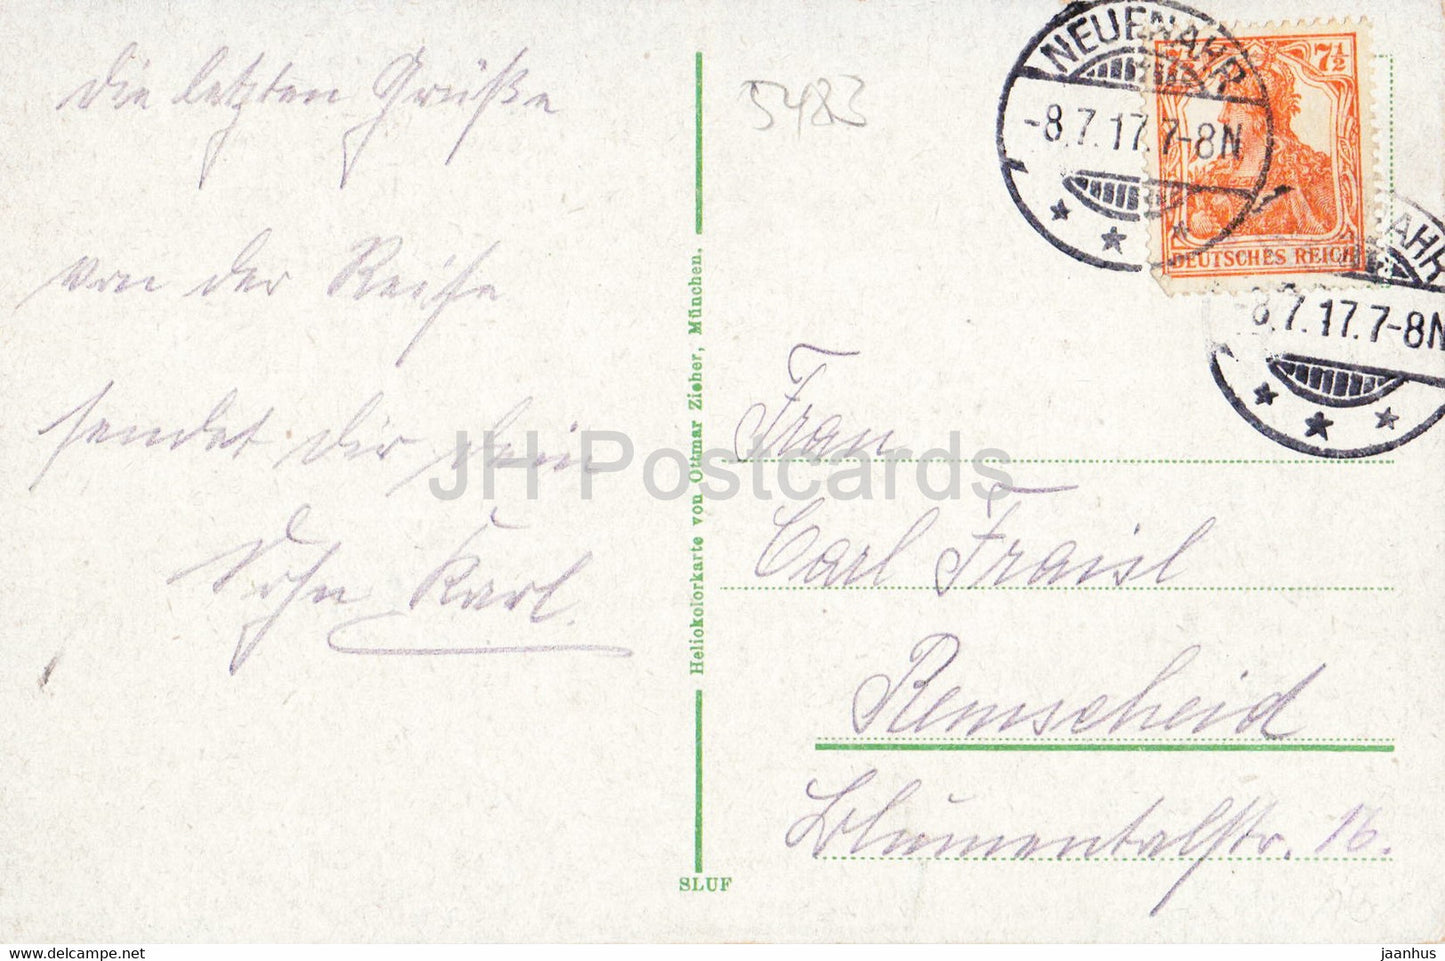 die letzten Grüße
von der Reise
sendet dir dein
Sohn Karl.
5483
NEUENAHR
-8.7.17.7-8N
7½
DEUTSCHES REICH
AHR
-8.7.17.7-8N
Heliokolorkarte von Ottmar Zieher, München.
SLUF
JH Postcards
Frau
Carl Fraisl
Remscheid
Blumentalstr. 16.
https://www.ebay.com
jaanhus